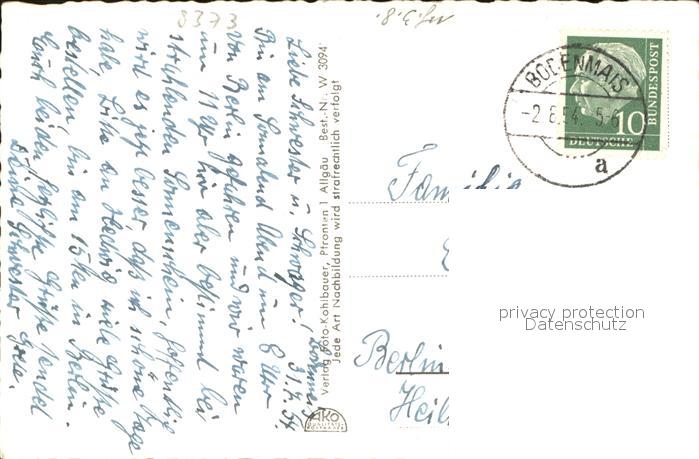 3373
BODENMAIS
-2.8.54. 5-6
a
10
BUNDESPOST
DEUTSCHE
Bodenmais
31.7.54.
Liebe Schwester u. Schwager!
Bin am Sonnabend Abend um 8 Uhr
von Berlin gefahren und wir waren
um 11 Uhr hier aber bestimmt bei
strahlenden Sonnenschein, hoffentlich
wird es jetzt besser, daß ich schöne Tage
habe. Bitte an Hedwig viele Grüße
bestellen, bin am 15ten in Berlin.
Euch beiden herzliche Grüße sendet
Eure Schwester
Verlag Foto-Kohlbauer, Pfronten 1 Allgäu Best.-Nr. W 3094
Jede Art Nachbildung wird strafrechtlich verfolgt
AKO
Familie
Berlin
Heil
privacy protection
Datenschutz